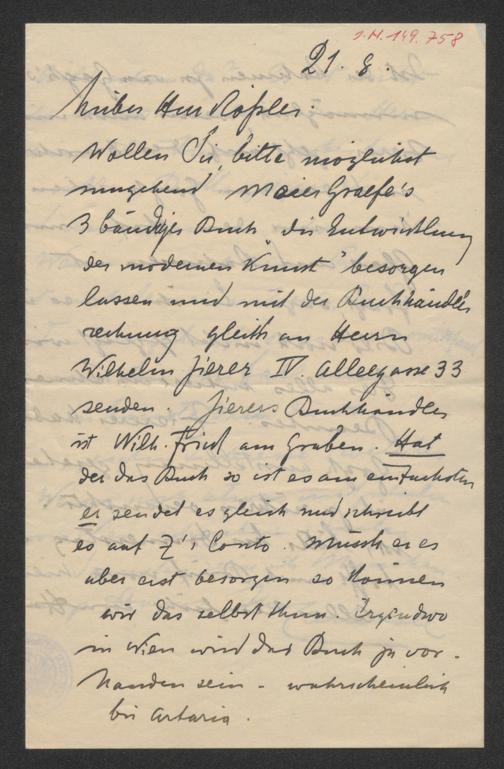 I.N. 149.758
21. 8.
Lieber Herr Roessler:
Wollen Sie, bitte möglichst
umgehend Meier Graefe's
3 bändiges Buch die Entwicklung
der modernen Kunst" besorgen
lassen und mit der Buchhändler
rechnung gleich an Herrn
Wilhelm Zierer IV. Alleegasse 33
senden. Zierers Buchhändler
ist Wilh. Frick am Graben. Hat
der das Buch so ist es am einfachsten
er sendet es gleich und schreibt
es auf Z's Conto. Müsste er es
aber erst besorgen so können
wir das selbst thun. Irgendwo
in Wien wird das Buch ja vor-
handen sein - wahrscheinlich
bei Artaria.